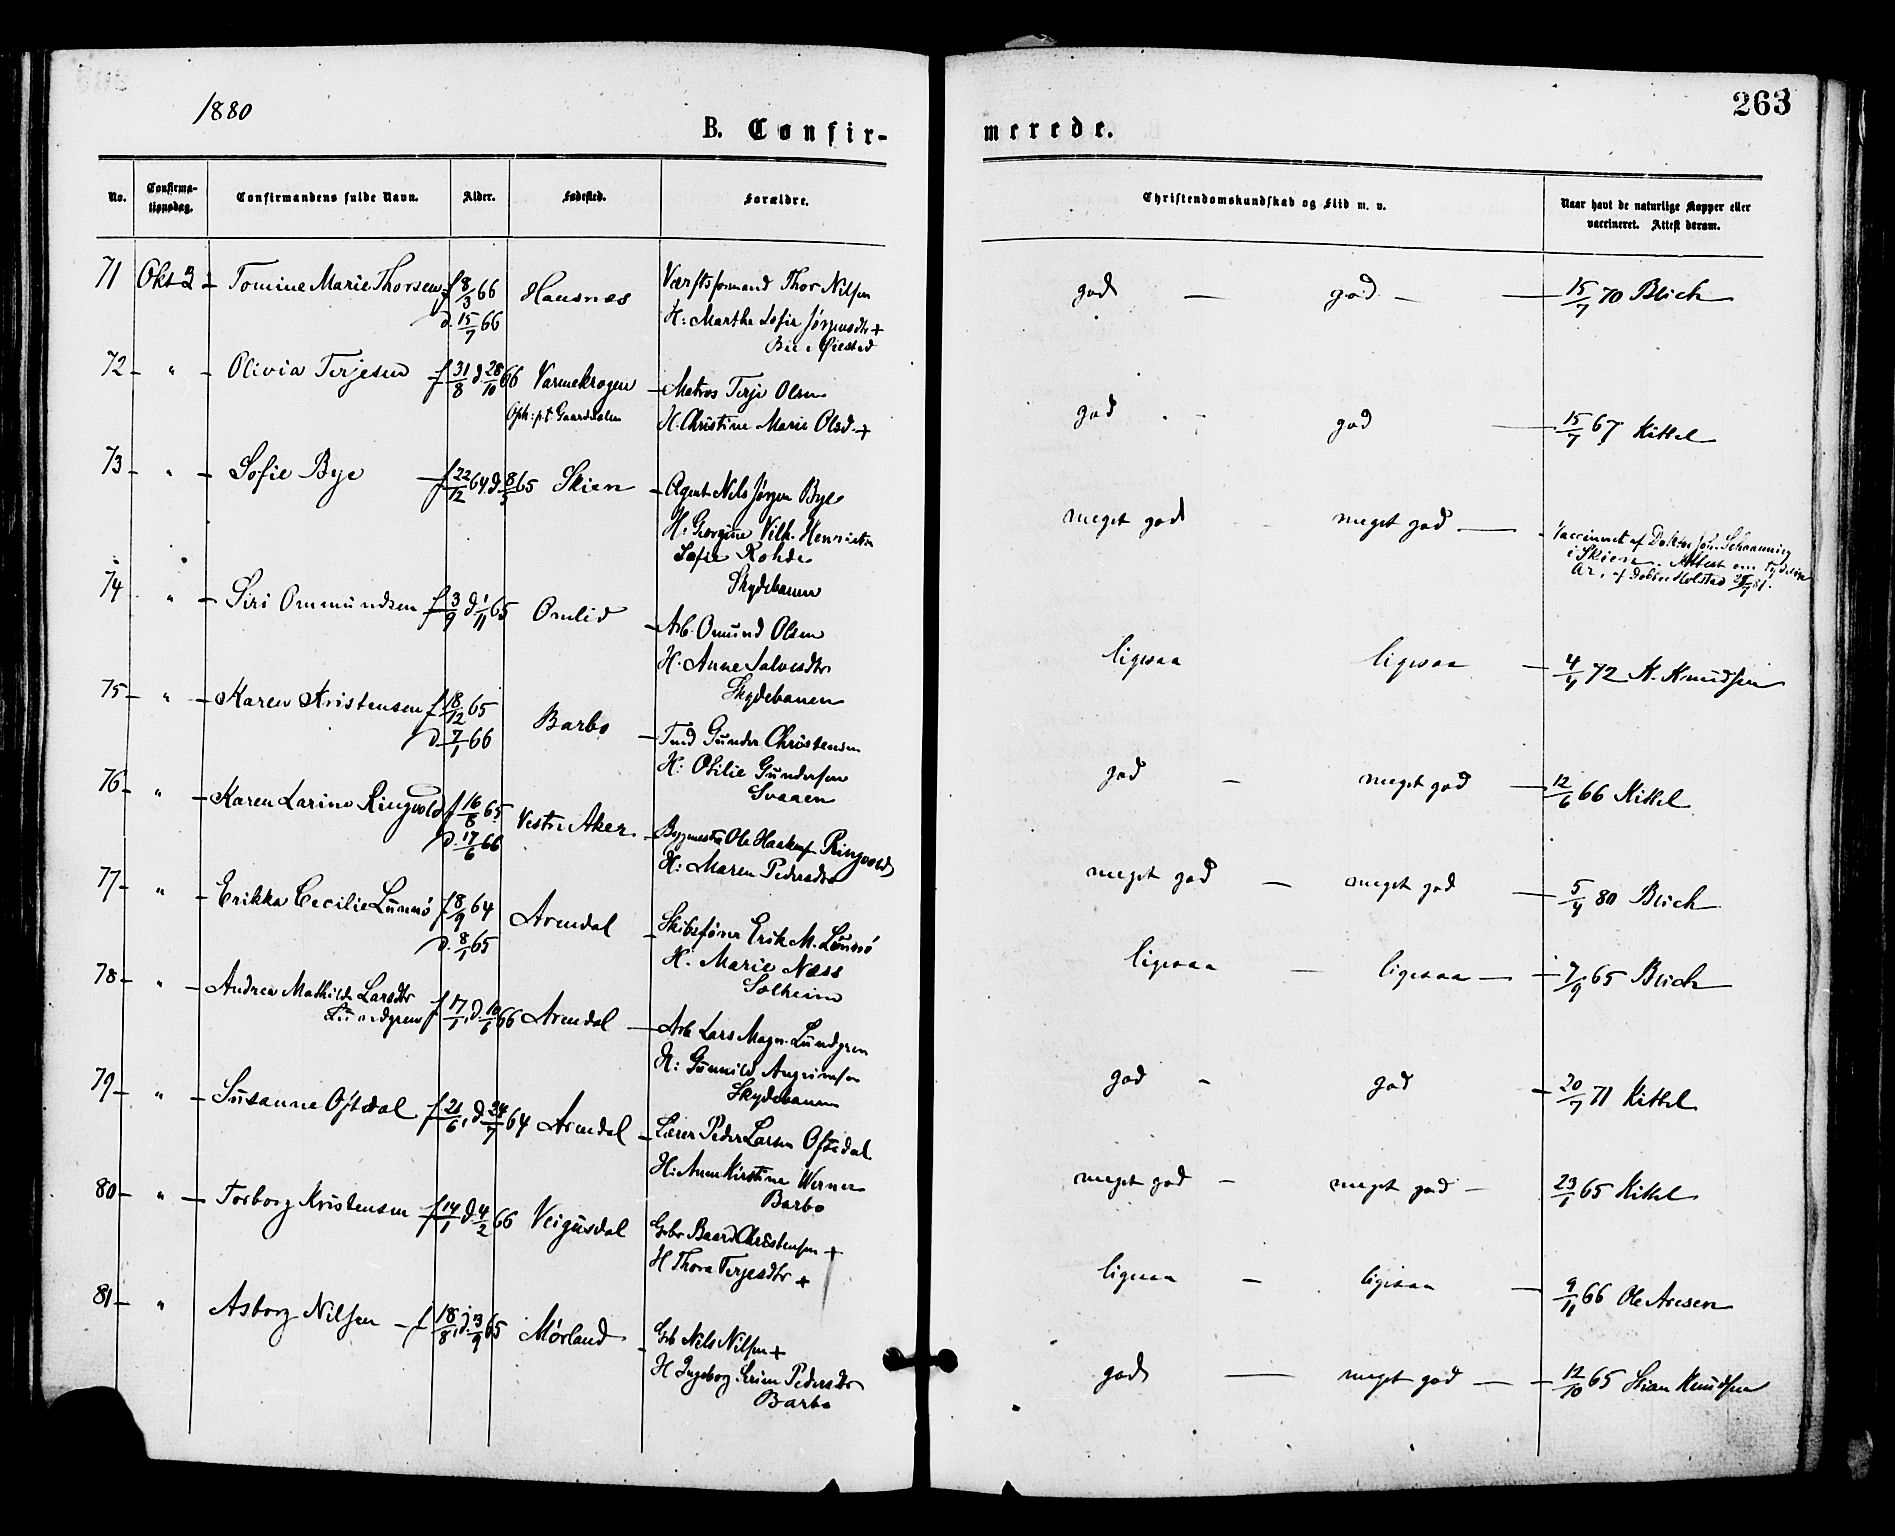 1880
263
B. Confir-
merede.
No.
Confirma-
tionsdag.
Confirmandens fulde Navn.
Alder.
Fødested.
Forældre.
Christendomskundskab og Flid m. v.
Naar havt de naturlige Kopper eller
vaccineret. Attest derom.
71 Okt 3 - Tomine Marie Thorsen f 8/3 66 Hausnæs Værftsformand Thor Nilsen god - god - 15/7 70 Blich
d. 15/7 66 H: Marthe Sofie Jørgensdtr +
72 - " - Olivia Terjesen f 31/8 d 28/10 66 Varmekrogen - Matros Terje Olsen god - god - 15/7 67 Kittel
Oph: p.t. Gaardsalen H. Christine Marie Olsd. +
73 - " - Sofie Bye f 22/12 64 d 8/5 65 Skien - Agent Nils Jørgen Bye meget god - meget god - Vaccineret af Doktor Joh. Schanning
H: Georgine Vilh. Henriette i Skien. Attest om tydelige
Sofie Rohde Ar. af doktor Holstad
Skydebanen
74 " - Siri Ommundsen f 3/9 d 1/11 65 Omlid - Arb. Omund Olsen ligesaa ligesaa - 4/4 72 K. Knudsen
H. Anne Salvesdtr
Skydebanen
75 - " - Karen Kristensen f 18/12 65 Barbo - Tmd Gunder Christensen god - meget god - 12/6 66 Kittel
d. 7/1 66 H: Otilie Gundersen
Svaaen
76 - " - Karen Larine Ringvold f 16/8 65 Vestre Aker - Bygmester Ole Haakens Ringvold meget god - meget god - 5/4 80 Blich
d. 17/6 66 H: Maren Pedersdtr
77 - " - Erikka Cecilie Lunnø f 8/9 64 Arendal - Skibsfører Erik M. Lunnø ligesaa - ligesaa - 7/9 65 Blich
d. 8/1 65 H. Marie Næss
Solheim
78 - " - Andrea Mathilde Larsdtr
Lundgren f 17/1 d. 10/6 66 Arendal - Arb Lars Magn. Lundgren god - god - 20/7 71 Kittel
H: Gunnild
Skydebanen
79 - " - Susanne Oftedal f 21/6, d 24/7 64 Arendal - Lærer Peder Larsen Oftedal meget god - meget god - 23/1 65 Kittel
H: Anne Kirstine Werner
Barbo
80 - " - Torborg Kristensen f 14/1 d 4/2 66 Veigusdal Gbr Baard Christensen + ligesaa - ligesaa - 9/11 66 Ole Aresen
H Thora Terjesdtr +
81 - " Asborg Nilsen - f 18/8, d. 3/9 65 Mørland - Gb Nels Nilsen + god - meget god - 12/10 65 Knudsen
H Ingeborg Serine Pedersdtr
Barbo